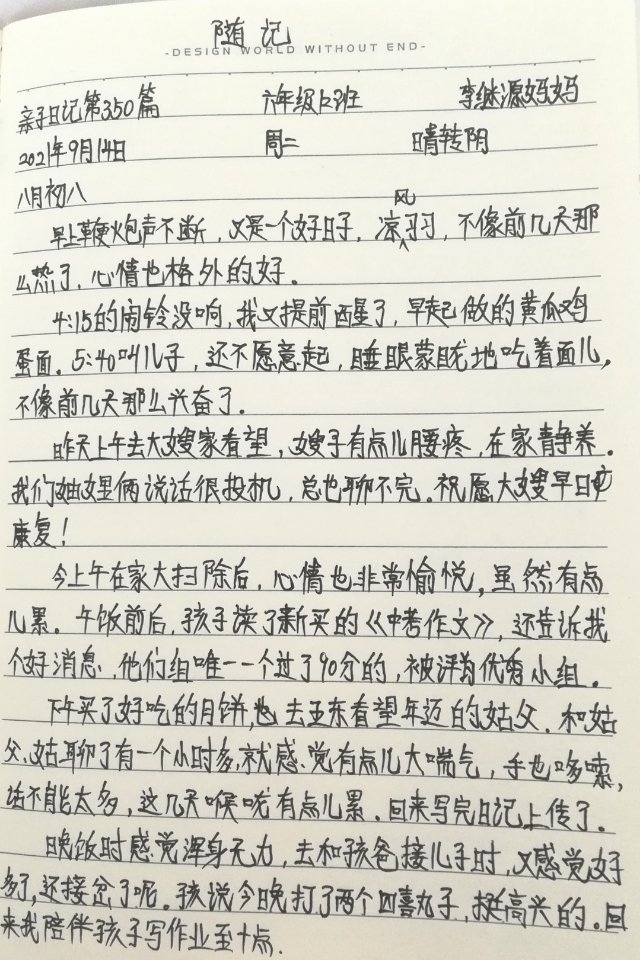 随记
-DESIGN WORLD WITHOUT END-
亲子日记第350篇 六年级12班 李继源妈妈
2021年9月14日 周二 晴转阴
八月初八
早上鞭炮声不断，又是一个好日子，凉风习习，不像前几天那
么热了，心情也格外的好。
4:15的闹铃没响，我又提前醒了，早起做的黄瓜鸡
蛋面。5:40叫儿子，还不愿意起，睡眼蒙眬地吃着面儿，
不像前几天那么兴奋了。
昨天上午去大嫂家看望，嫂子有点儿腰疼，在家静养。
我们妯娌俩说话很投机，总也聊不完。祝愿大嫂早日
康复！
今上午在家大扫除后，心情也非常愉悦，虽然有点
儿累。午饭前后，孩子读了新买的《中考作文》，还告诉我
个好消息，他们组唯一一个过了90分的，被评为优秀小组。
下午买了好吃的月饼，也去王东看望年迈的姑父。和姑
父、姑聊了有一个小时多，就感觉有点儿大喘气，手也哆嗦，
话不能太多，这几天喉咙有点儿累。回来写完日记上传了。
晚饭时感觉浑身无力，去和孩爸接儿子时，又感觉好
多了，还接岔了呢。孩说今晚打了两个四喜丸子，挺高兴的。回
来我陪伴孩子写作业至十点.